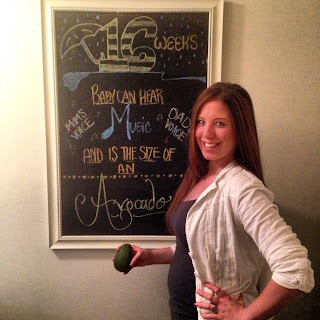 16 WEEKS
BABY CAN HEAR
MOM'S VOICE
MUSIC
DAD VOICE
AND IS THE SIZE OF
AN
Avocado